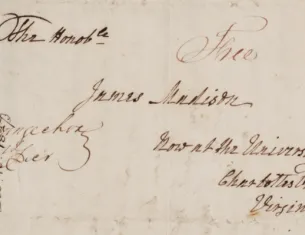 The Honoble
Free
James Madison
Now at the Univers
Charlottes
Virgin